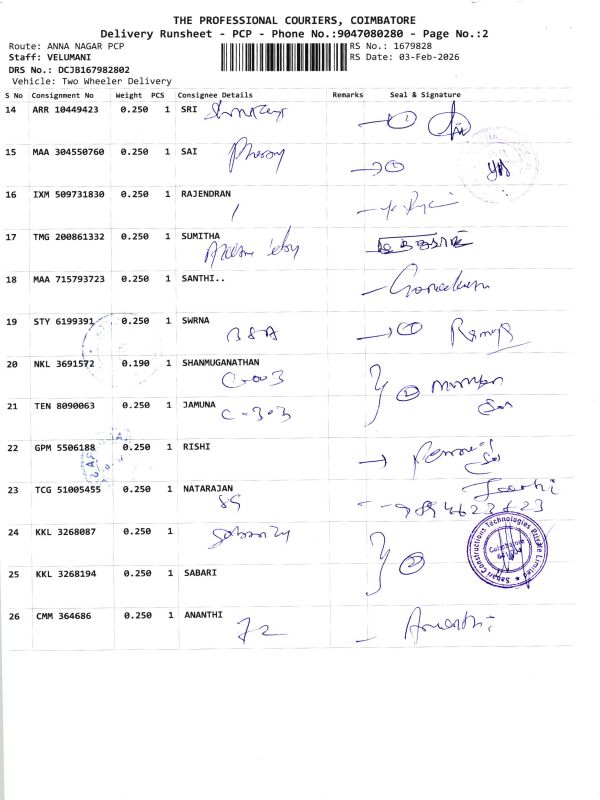 THE PROFESSIONAL COURIERS, COIMBATORE
Delivery Runsheet - PCP - Phone No.:9047080280 - Page No.:2
Route: ANNA NAGAR PCP RS No.: 1679828
Staff: VELUMANI RS Date: 03-Feb-2026
DRS No.: DCJB167982802
Vehicle: Two Wheeler Delivery
S No Consignment No Weight PCS Consignee Details Remarks Seal & Signature
14 ARR 10449423 0.250 1 SRI
15 MAA 304550760 0.250 1 SAI
16 IXM 509731830 0.250 1 RAJENDRAN
17 TMG 200861332 0.250 1 SUMITHA
18 MAA 715793723 0.250 1 SANTHI..
19 STY 6199391 0.250 1 SWRNA
BSA
20 NKL 3691572 0.190 1 SHANMUGANATHAN
21 TEN 8090063 0.250 1 JAMUNA
C-303
22 GPM 5506188 0.250 1 RISHI
23 TCG 51005455 0.250 1 NATARAJAN
89
24 KKL 3268087 0.250 1
Sabari Constructions Technologies Private Limited
Coimbatore
25 KKL 3268194 0.250 1 SABARI
26 CMM 364686 0.250 1 ANANTHI
72 Ananthi